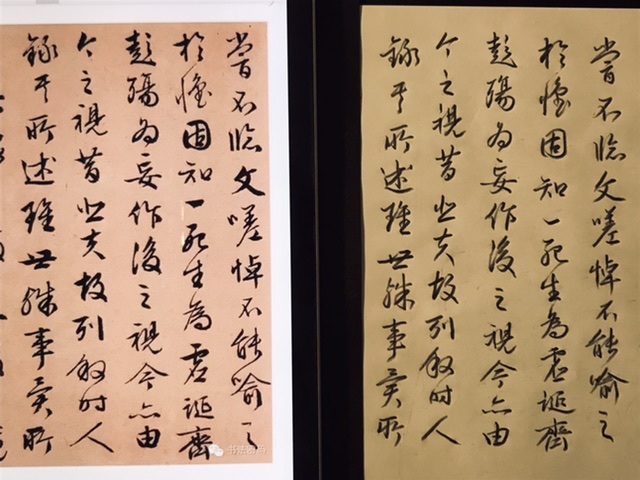 嘗不臨文嗟悼不能喻之
於懷固知一死生為虛誕齊
彭殤為妄作後之視今亦由
今之視昔悲夫故列敘時人
錄其所述雖世殊事異所
嘗不臨文嗟悼不能喻之
於懷固知一死生為虛誕齊
彭殤為妄作後之視今亦由
今之視昔悲夫故列敘時人
錄其所述雖世殊事異所